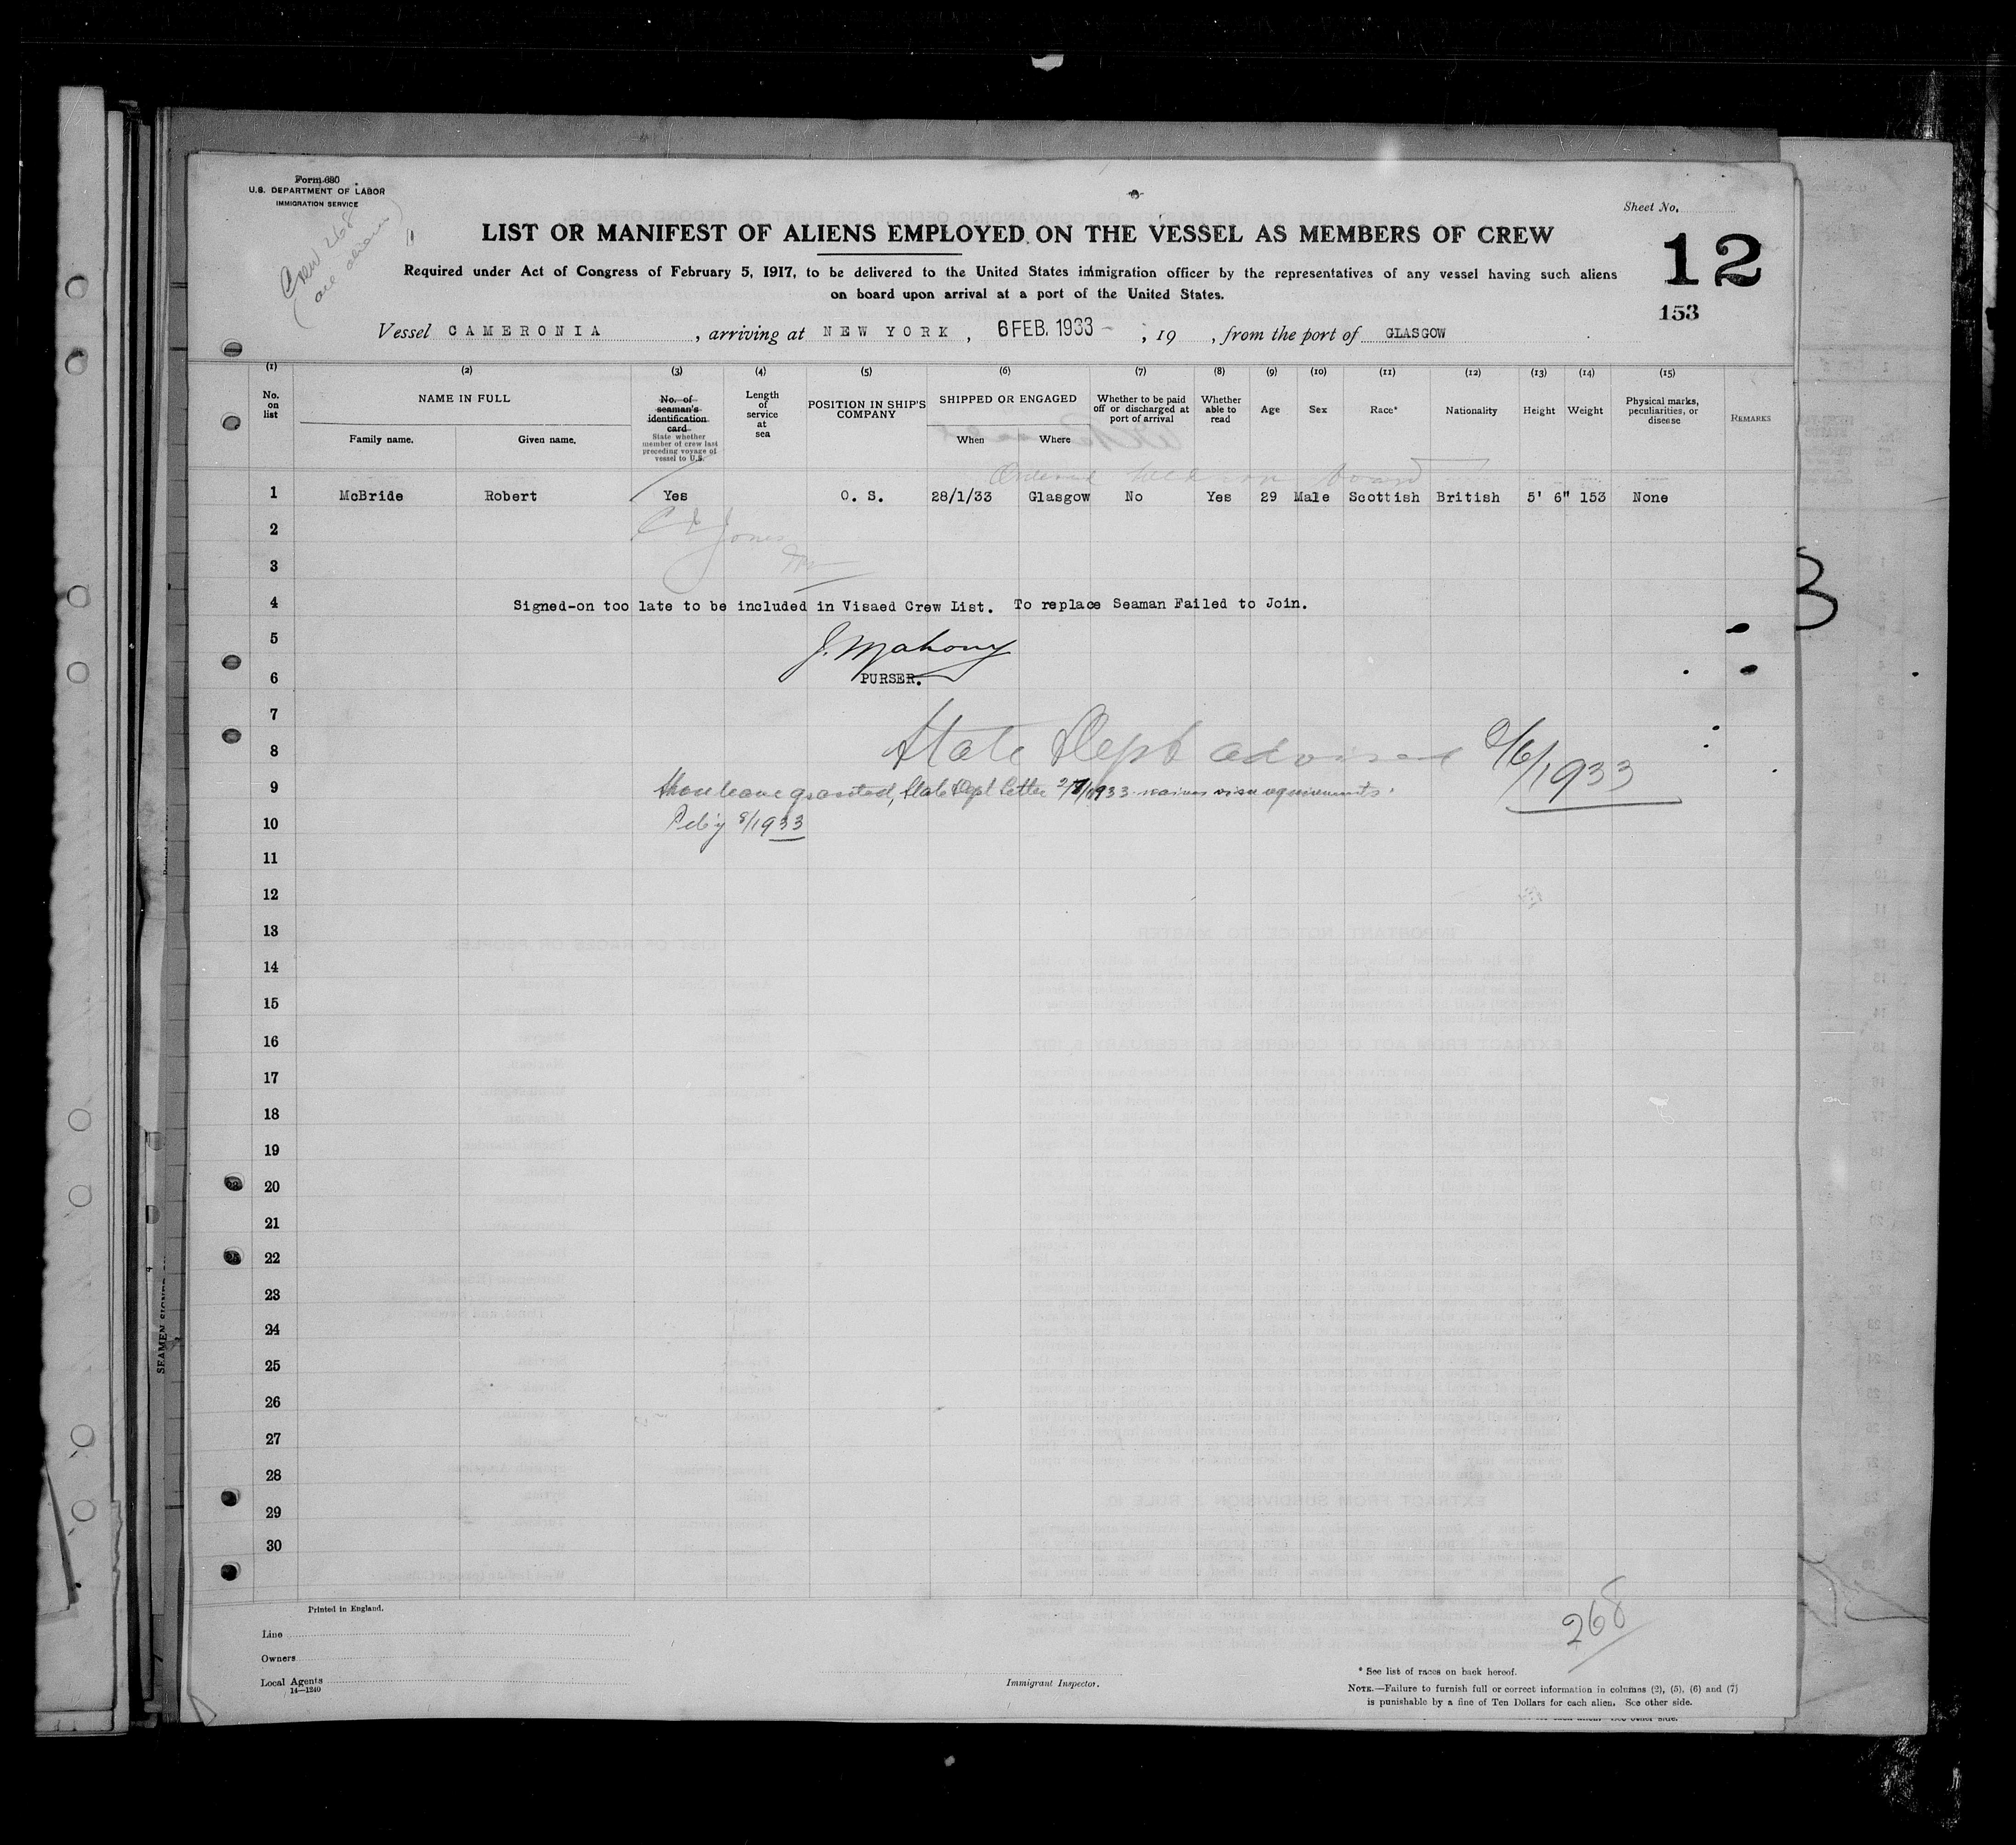 Form 680
U.S. DEPARTMENT OF LABOR
IMMIGRATION SERVICE
Crew 268
all aliens
Sheet No.
12
153
LIST OR MANIFEST OF ALIENS EMPLOYED ON THE VESSEL AS MEMBERS OF CREW
Required under Act of Congress of February 5, 1917, to be delivered to the United States immigration officer by the representatives of any vessel having such aliens
on board upon arrival at a port of the United States.
Vessel CAMERONIA, arriving at NEW YORK, 6 FEB. 1933, 19 , from the port of GLASGOW
(1) (2) (3) (4) (5) (6) (7) (8) (9) (10) (11) (12) (13) (14) (15)
No. on list
NAME IN FULL
Family name. Given name.
No. of seaman's identification card
State whether member of crew last preceding voyage of vessel to U.S.
Length of service at sea
POSITION IN SHIP'S COMPANY
SHIPPED OR ENGAGED
When Where
Whether to be paid off or discharged at port of arrival
Whether able to read
Age
Sex
Race*
Nationality
Height
Weight
Physical marks, peculiarities, or disease
REMARKS
Ordered held on board
1 McBride Robert Yes O. S. 28/1/33 Glasgow No Yes 29 Male Scottish British 5' 6" 153 None
2 C E Jones
3
4 Signed-on too late to be included in Visaed Crew List. To replace Seaman Failed to Join.
5 J. Mahony
6 PURSER.
7
8 State Dept advised 2/6/1933
9 Shore leave granted, State Dept letter 2/7/1933 waives visa requirements.
10 Feb'y 8/1933
11
12
13
14
15
16
17
18
19
20
21
22
23
24
25
26
27
28
29
30
Printed in England.
Line
Owners
Local Agents
14—1240
Immigrant Inspector.
268
* See list of races on back hereof.
NOTE.—Failure to furnish full or correct information in columns (2), (5), (6) and (7)
is punishable by a fine of Ten Dollars for each alien. See other side.